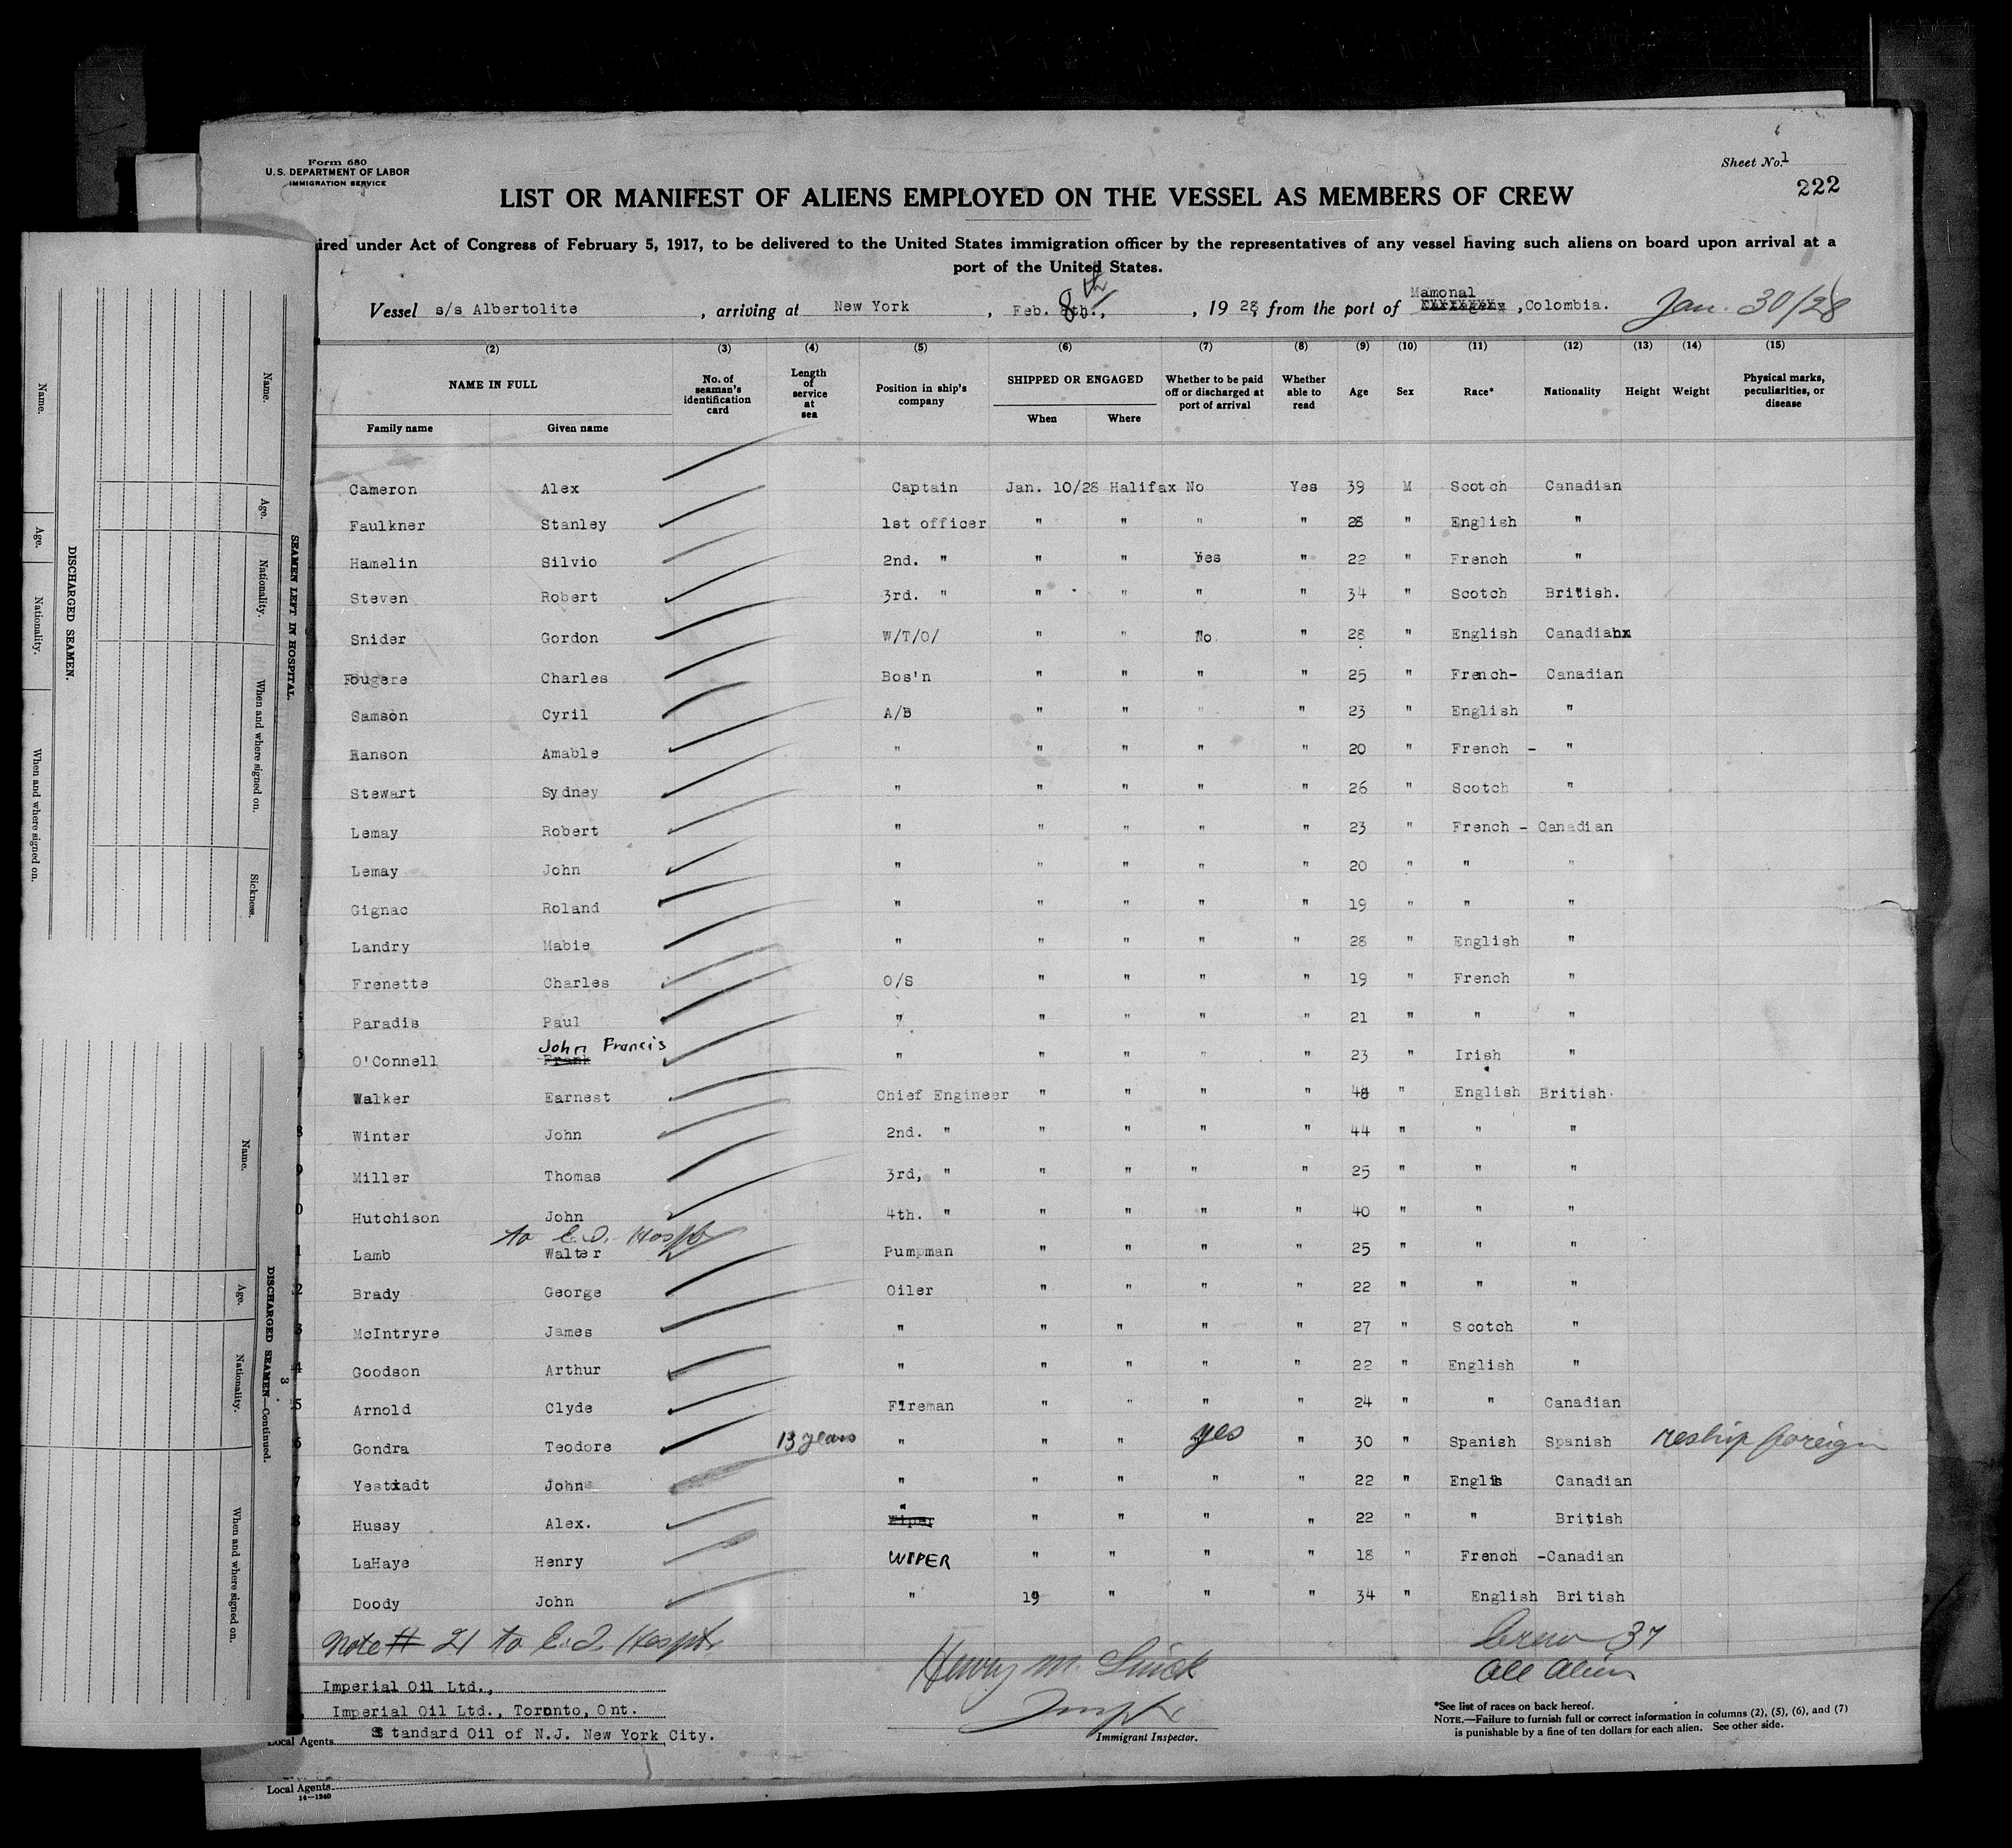 Form 680
U.S. DEPARTMENT OF LABOR
IMMIGRATION SERVICE
Sheet No. 1
222
LIST OR MANIFEST OF ALIENS EMPLOYED ON THE VESSEL AS MEMBERS OF CREW
ired under Act of Congress of February 5, 1917, to be delivered to the United States immigration officer by the representatives of any vessel having such aliens on board upon arrival at a
port of the United States.
Vessel s/s Albertolite, arriving at New York, Feb. 8th, 1928, from the port of Mamonal, Colombia. Jan. 30/28
(2) (3) (4) (5) (6) (7) (8) (9) (10) (11) (12) (13) (14) (15)
NAME IN FULL No. of seaman's identification card Length of service at sea Position in ship's company SHIPPED OR ENGAGED Whether to be paid off or discharged at port of arrival Whether able to read Age Sex Race* Nationality Height Weight Physical marks, peculiarities, or disease
Family name Given name When Where
Cameron Alex Captain Jan. 10/28 Halifax No Yes 39 M Scotch Canadian
Faulkner Stanley 1st officer " " " " 28 " English "
Hamelin Silvio 2nd. " " " Yes " 22 " French "
Steven Robert 3rd. " " " " " 34 " Scotch British.
Snider Gordon W/T/O/ " " No. " 28 " English Canadian
Fougere Charles Bos'n " " " " 25 " French- Canadian
Samson Cyril A/B " " " " 23 " English "
Ranson Amable " " " " " 20 " French - "
Stewart Sydney " " " " " 26 " Scotch "
Lemay Robert " " " " " 23 " French - Canadian
Lemay John " " " " " 20 " " "
Gignac Roland " " " " " 19 " " "
Landry Mabie " " " " " 28 " English "
Frenette Charles O/S " " " " 19 " French "
Paradis Paul " " " " " 21 " " "
John Francis
O'Connell Frank " " " " " 23 " Irish "
Walker Earnest Chief Engineer " " " " 48 " English British.
Winter John 2nd. " " " " " 44 " " "
Miller Thomas 3rd, " " " " " 25 " " "
Hutchison John 4th. " " " " " 40 " " "
to E.I. Hospt
Lamb Walter Pumpman " " " " 25 " " "
Brady George Oiler " " " " 22 " " "
McIntryre James " " " " " 27 " Scotch "
Goodson Arthur " " " " " 22 " English "
Arnold Clyde Fireman " " " " 24 " " Canadian
Gondra Teodore 13 years " " " yes " 30 " Spanish Spanish reship foreign
Yestxadt John " " " " " 22 " Englis Canadian
Hussy Alex. Wiper " " " " 22 " " British
LaHaye Henry WIPER " " " " 18 " French -Canadian
Doody John " 19 " " " 34 " English British
Note # 21 to E.I. Hospt.
Crew 37
All Alien
Imperial Oil Ltd.,
Imperial Oil Ltd., Toronto, Ont.
Local Agents Standard Oil of N.J. New York City.
Henry M.
Immigrant Inspector.
*See list of races on back hereof.
NOTE.—Failure to furnish full or correct information in columns (2), (5), (6), and (7)
is punishable by a fine of ten dollars for each alien. See other side.
Local Agents
14—1240
SEAMEN LEFT IN HOSPITAL.
Name. Age. Nationality. When and where signed on. Sickness.
DISCHARGED SEAMEN.
Name. Age. Nationality. When and where signed on.
DISCHARGED SEAMEN—Continued.
3
Name. Age. Nationality. When and where signed on.